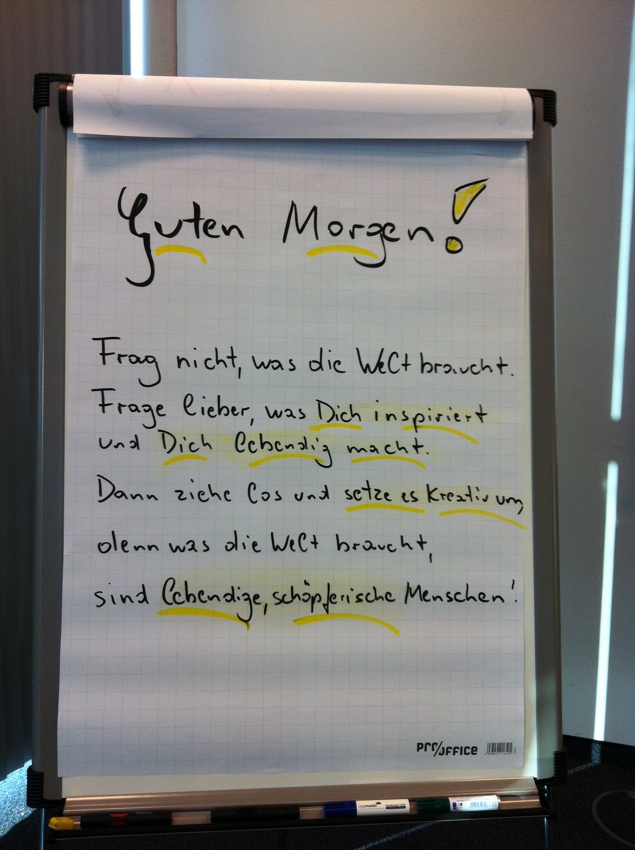 Guten Morgen!
Frag nicht, was die Welt braucht.
Frage lieber, was Dich inspiriert
und Dich lebendig macht.
Dann ziehe los und setze es kreativ um,
denn was die Welt braucht,
sind lebendige, schöpferische Menschen!
PRO/OFFICE